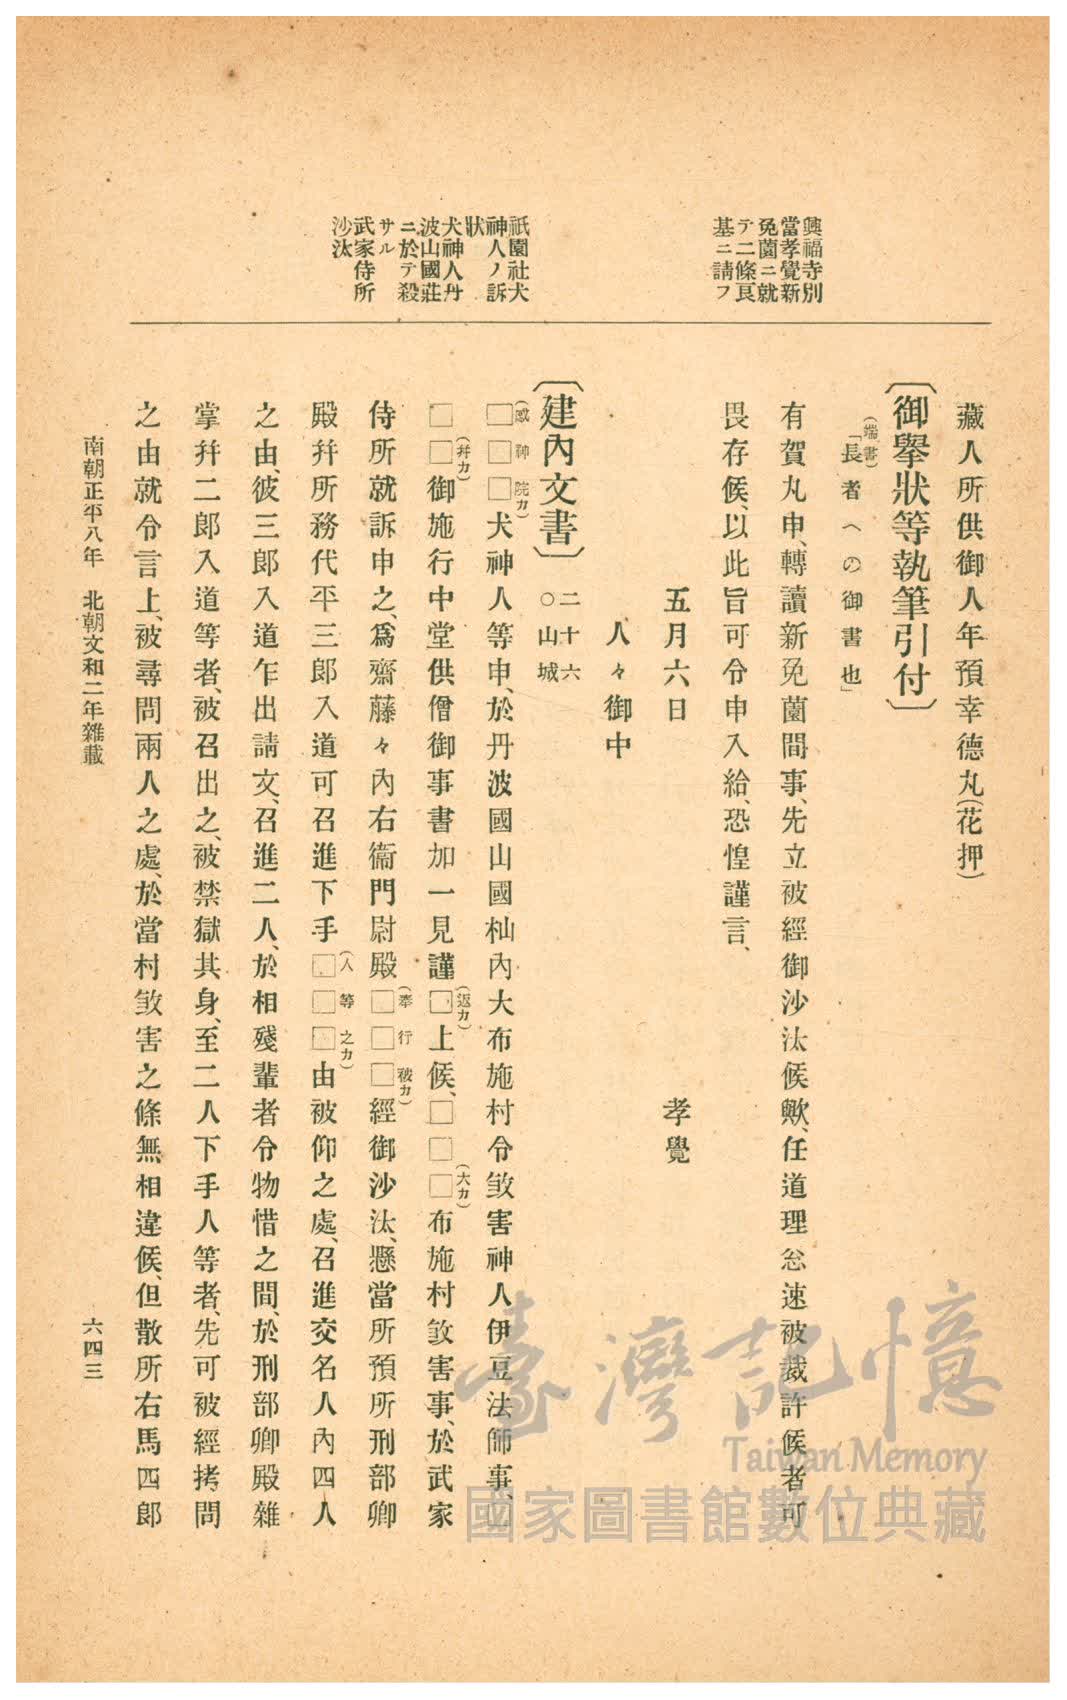 興福寺別
當孝覺新
免薗ニ就
テ二條良
基ニ請フ
祇園社犬
神人ノ訴
狀
犬神人丹
波山國莊
ニ於テ殺
サル
武家侍所
沙汰
藏人所供御人年預幸德丸(花押)
〔御擧狀等執筆引付〕
(端書)
「長者への御書也」
有賀丸申、轉讀新免薗間事、先立被經御沙汰候歟、任道理忩速被裁許候者可
畏存候、以此旨可令申入給、恐惶謹言、
五月六日 孝覺
人々御中
〔建內文書〕 二十六 ○山城
(感神院カ)
□□□犬神人等申、於丹波國山國杣內大布施村令敓害神人伊豆法師事、
(幷カ) (返カ) (大カ)
□□御施行中堂供僧御事書加一見謹□上候、□□□布施村敓害事、於武家
(奉行被カ)
侍所就訴申之、爲齋藤々內右衞門尉殿□□□經御沙汰、懸當所預所刑部卿
(人等之カ)
殿幷所務代平三郎入道可召進下手□□□由被仰之處、召進交名人內四人
之由、彼三郎入道乍出請文、召進二人、於相殘輩者令物惜之間、於刑部卿殿雜
掌幷二郎入道等者、被召出之、被禁獄其身、至二人下手人等者、先可被經拷問
之由就令言上、被尋問兩人之處、於當村敓害之條無相違候、但散所右馬四郎
南朝正平八年 北朝文和二年雜載 六四三
臺灣記憶
Taiwan Memory
國家圖書館數位典藏